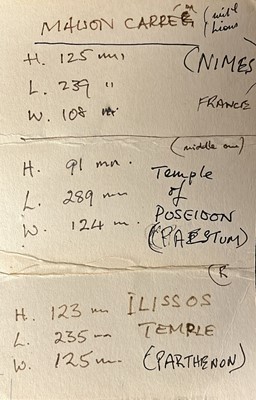 MAISON CARRÉE (with
lions
H. 125 mm (NIMES
L. 239 "
W. 108 m. FRANCE
(middle one)
H. 91 mm. Temple
L. 289 mm of
W. 124 m. POSEIDON
(PAESTUM)
(R
H. 123 mm ILISSOS
L. 235 mm TEMPLE
W. 125 mm. (PARTHENON)